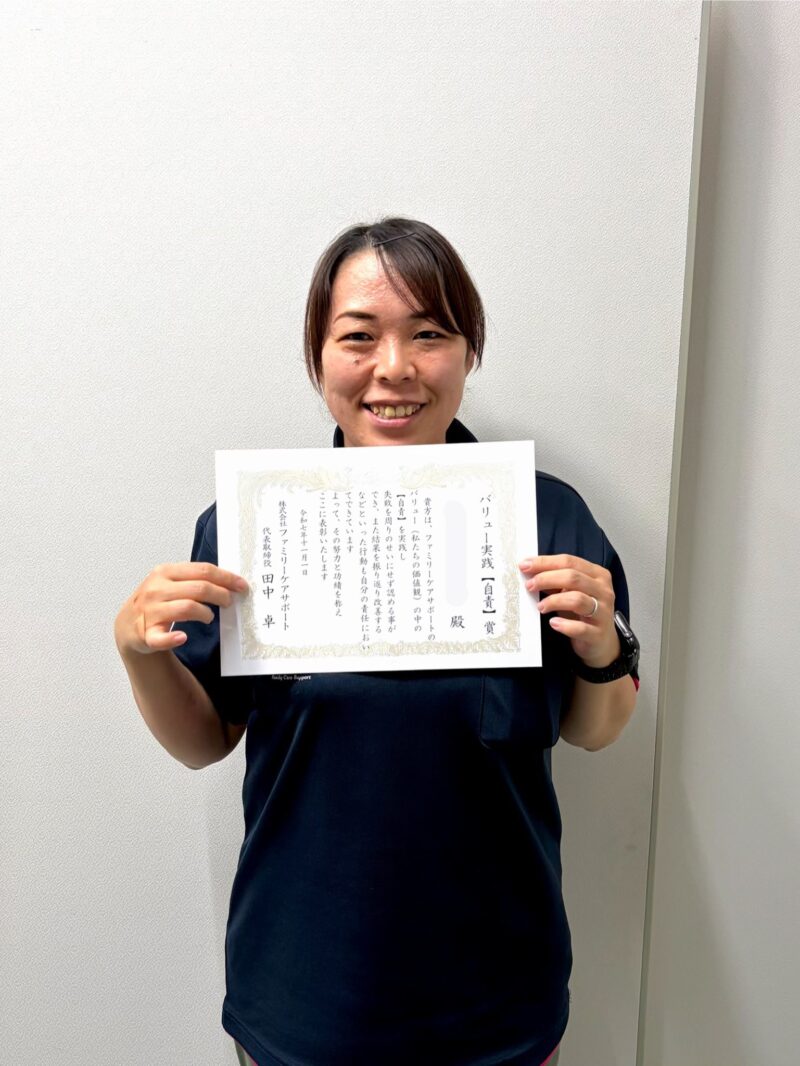 バリュー実践【自責】賞
殿
貴方は、ファミリーケアサポートの
バリュー（私たちの価値観）の中の
【自責】を実践し
失敗を周りのせいにせず認める事が
でき、また結果を振り返り改善する
などといった行動も自分の責任におい
てできています
よって、その努力と功績を称え
ここに表彰いたします
令和七年十一月一日
株式会社ファミリーケアサポート
代表取締役 田中 卓
Family Care Support